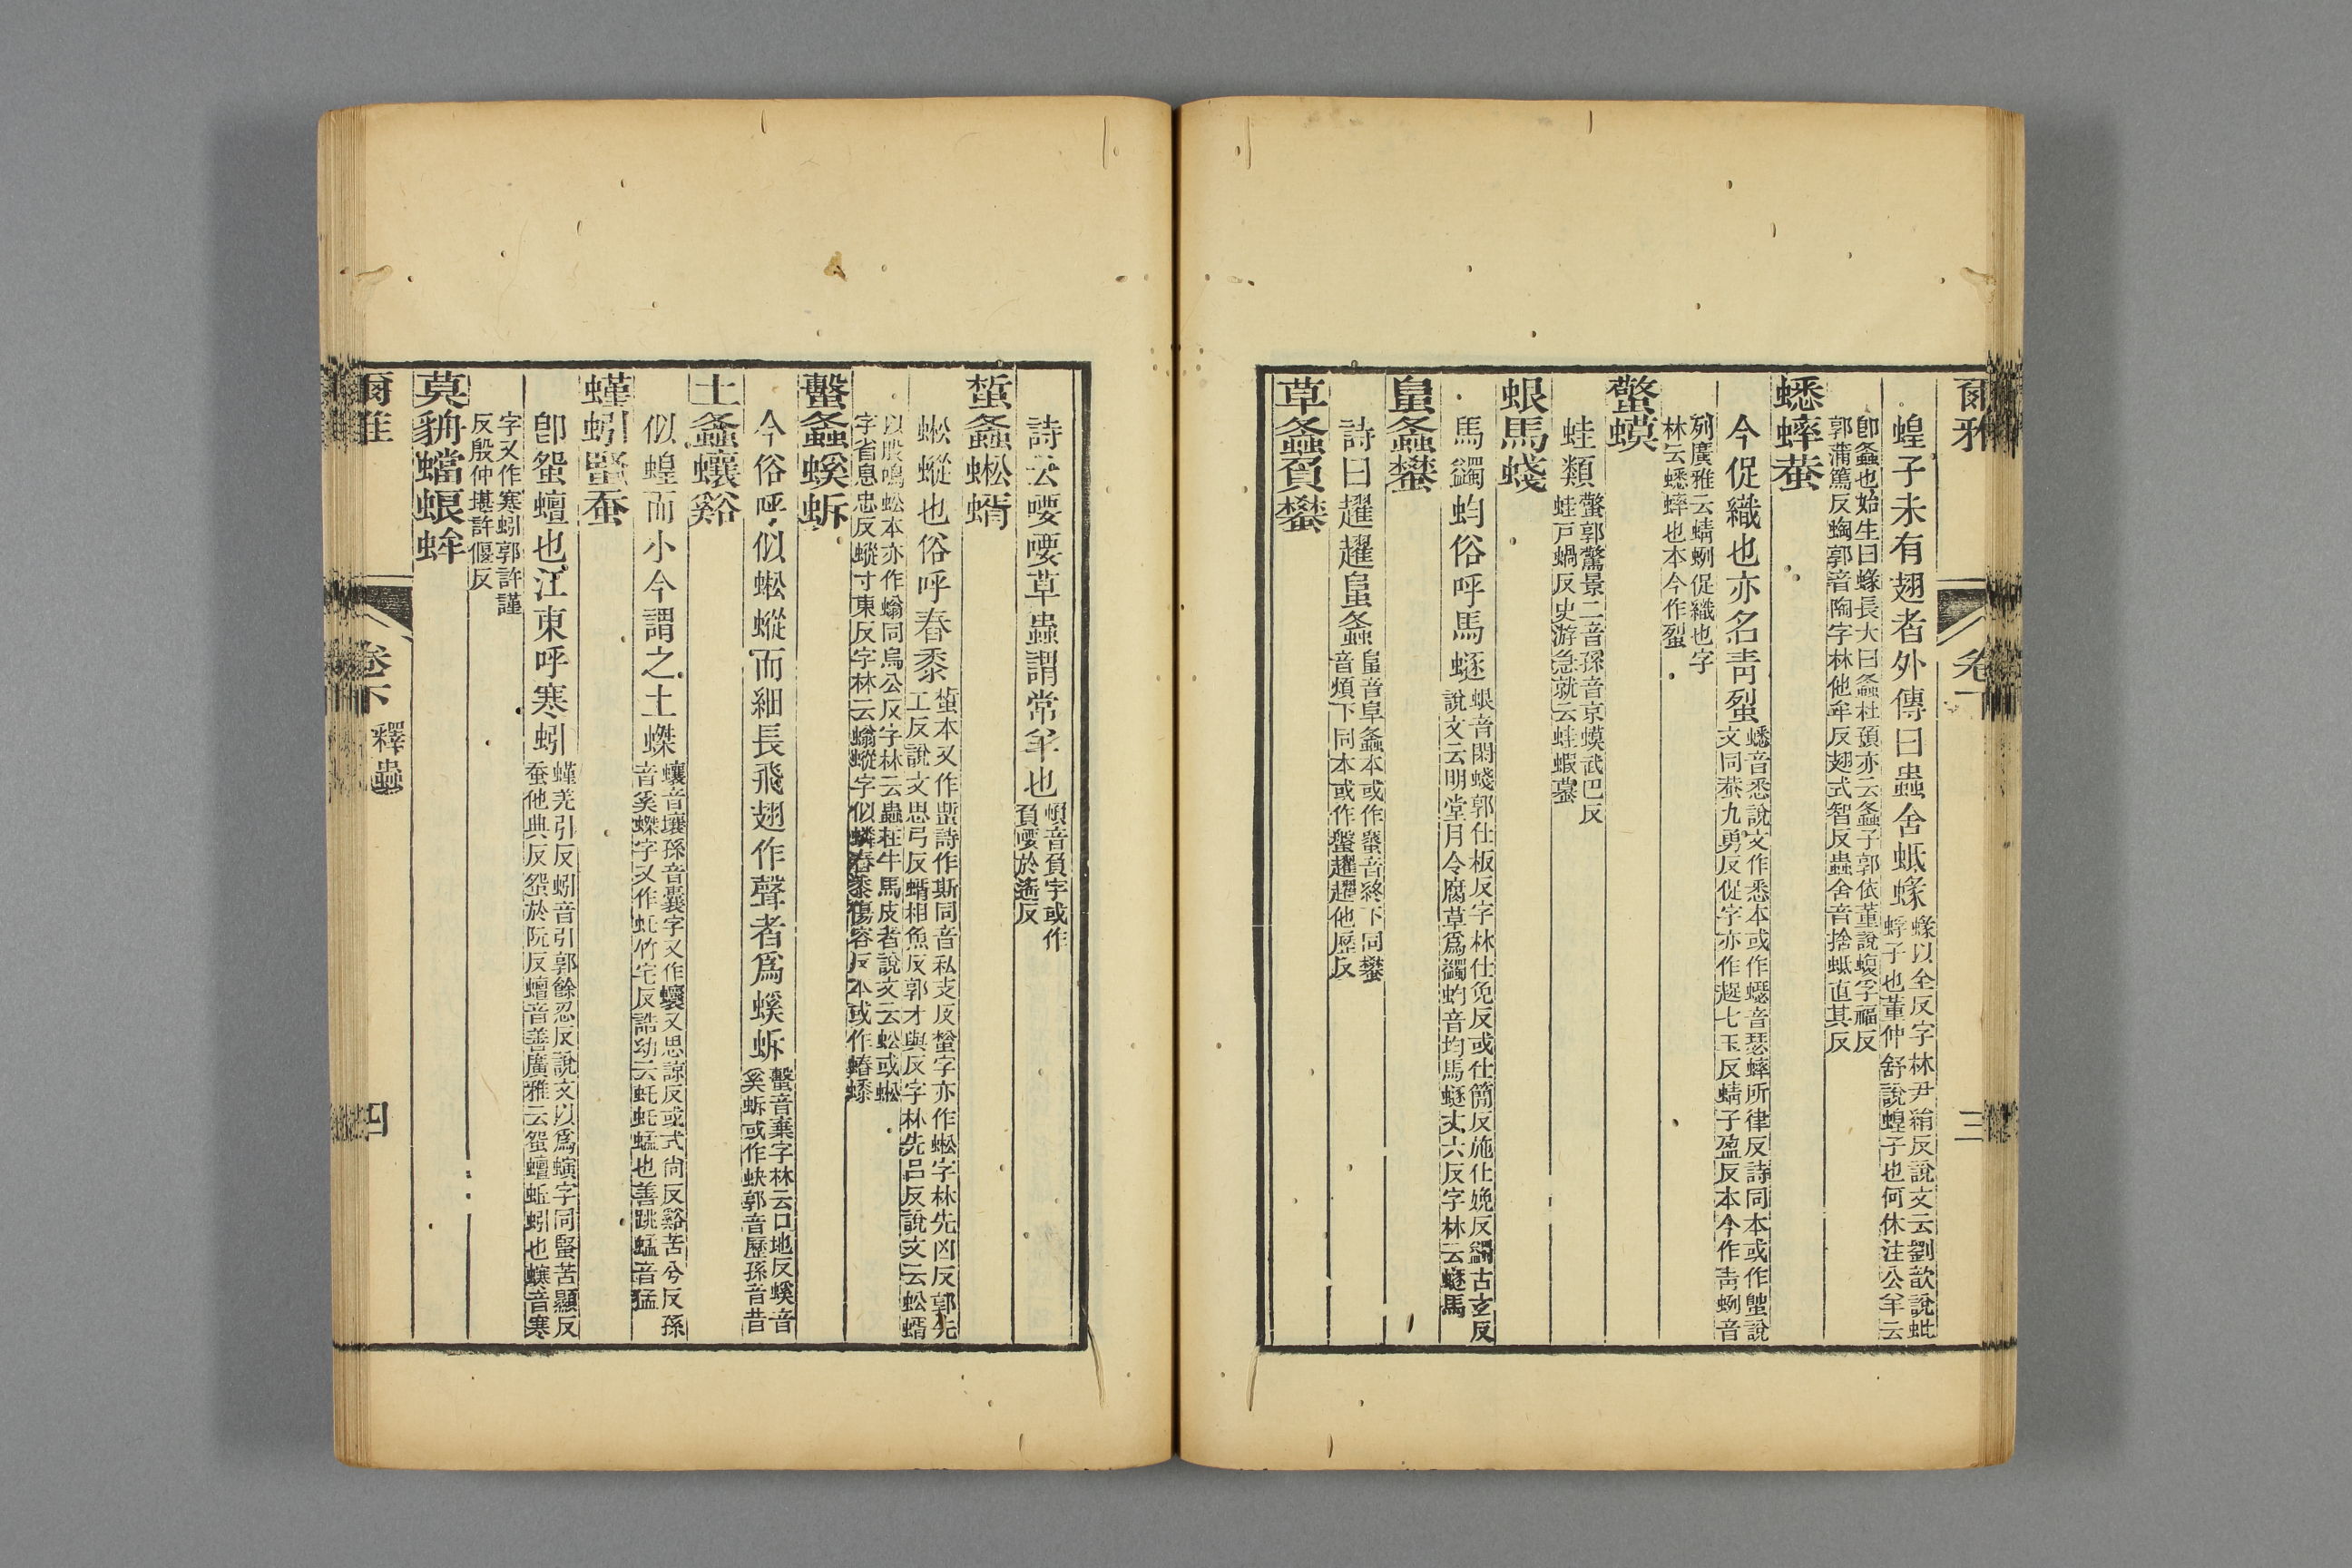 爾雅
卷下
三
蝗子未有翅者外傳曰蟲舍蚳蝝
蝝以全反字林尹絹反說文云劉歆說蚍
蜉子也董仲舒說蝗子也何休注公羊云
卽螽也始生曰蝝長大曰螽杜預亦云螽子郭依董說蝮孚福反
郭蒲篤反蜪郭音陶字林他牟反翅式智反蟲舍音捨蚳直其反
蟋蟀蛬
今促織也亦名青䖽
蟋音悉說文作悉本或作蟋音瑟蟀所律反詩同本或作䗐說
文同蛬九勇反促字亦作趗七玉反蜻子盈反本今作青蛚音
列廣雅云蜻蛚促織也字
林云蟋蟀也本今作䖽
蟼蟆
蛙類
蟼郭驚景二音孫音京蟆武巴反
蛙戶蝸反史游急就云蛙蝦蟇
蛝馬䗃
馬蠲蚐俗呼馬䗀
蛝音閑䗃郭仕板反字林仕免反或仕簡反施仕娩反蠲古玄反
說文云明堂月令腐草爲蠲蚐音均馬䗀丈六反字林云䗀馬
皇螽蠜
詩曰趯趯皇螽
皇音阜螽本或作螽音終下同蠜
音煩下同本或作蠜趯趯他歷反
草螽負蠜
詩云喓喓草蟲謂常羊也
蛗音負字或作
負喓於遙反
蜤螽蜙蝑
蜙蝑也俗呼春黍
蜤本又作蜇詩作斯同音私支反螽字亦作蜙字林先凶反郭先
工反說文思弓反蝑相魚反郭才與反字林先呂反說文云蜙蝑
以股鳴蚣本亦作螉同烏公反字林云蟲在牛馬皮者說文云蚣或蜙
字省息忠反蝑寸東反字林云螉蝑字似蟒舂黍傷容反本或作蝽䗝
蟿螽螇蚸
今俗呼似蜙蝑而細長飛翅作聲者爲螇蚸
蟿音棄字林云口地反螇音
奚蚸或作蚗郭音歷孫音昔
土螽蠰谿
似蝗而小今謂之土𧎴
蠰音壤孫音曩字又作蠰又思諒反或式尙反谿苦兮反孫
音奚𧎴字又作虴竹宅反誥幼云虴虴蜢也善跳蜢音猛
螼蚓蜸蚕
卽蛩蟺也江東呼寒蚓
螼羌引反蚓音引郭餘忍反說文以爲螾字同蜸苦顯反
蚕他典反蛩於阮反蟺音善廣雅云蛩蟺蚯蚓也蠸音寒
字又作寒蚓郭許謹
反殷仲堪許偃反
莫貈蟷蜋蛑
爾雅
卷下
釋蟲
四